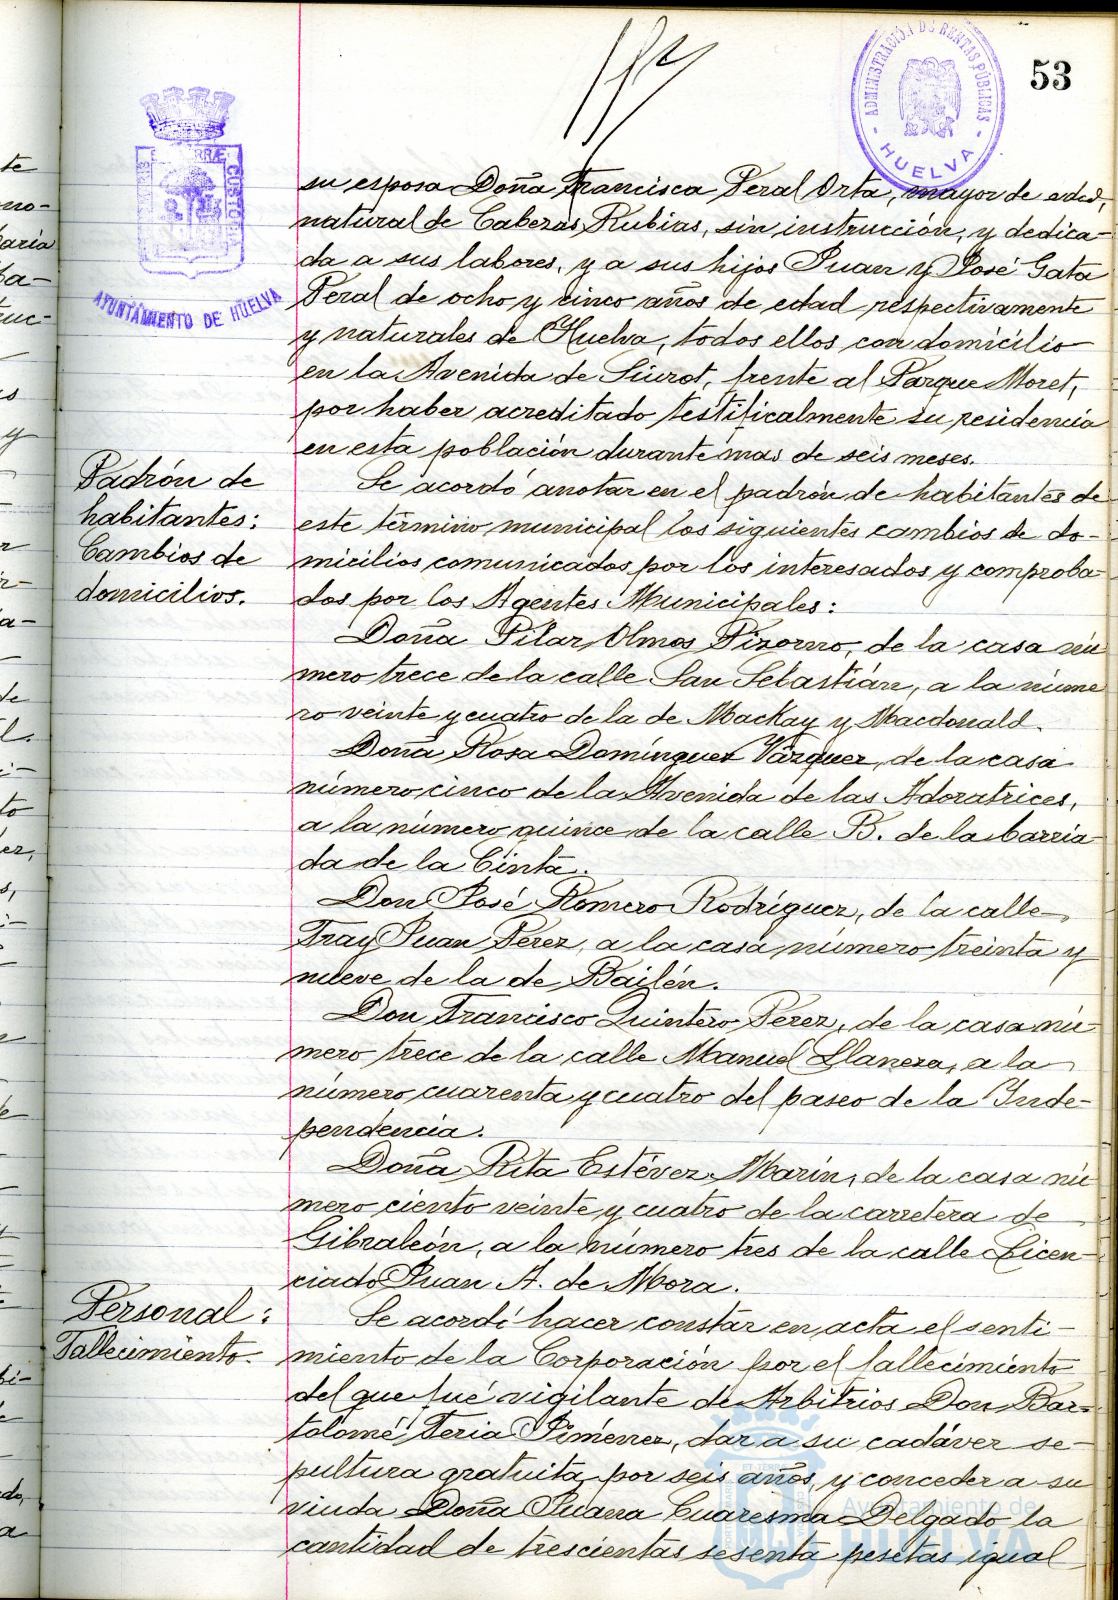 53
ADMINISTRACIÓN DE RENTAS PÚBLICAS
HUELVA
AYUNTAMIENTO DE HUELVA
su esposa Doña Francisca Peral Orta, mayor de edad,
natural de Cabezas Rubias, sin instrucción, y dedica-
da a sus labores, y a sus hijos Juan y José Gata
Peral de ocho y cinco años de edad respectivamente
y naturales de Huelva, todos ellos con domicilio
en la Avenida de Siurot, frente al Parque Moret,
por haber acreditado testificalmente su residencia
en esta población durante mas de seis meses.
Padrón de
habitantes:
Cambios de
domicilios.
Se acordó anotar en el padrón de habitantes de
este término municipal los siguientes cambios de do-
micilios comunicados por los interesados y comproba-
dos por los Agentes Municipales:
Doña Pilar Olmos Pizorno, de la casa nú
mero trece de la calle San Sebastián, a la núme
ro veinte y cuatro de la de Mackay y Macdonald.
Doña Rosa Domínguez Vázquez, de la casa
número cinco de la Avenida de las Adoratrices,
a la número quince de la calle B. de la barria
da de la Cinta.
Don José Romero Rodríguez, de la calle
Fray Juan Pérez, a la casa número treinta y
nueve de la de Bailén.
Don Francisco Quintero Pérez, de la casa nú
mero trece de la calle Manuel Llaneza, a la
número cuarenta y cuatro del paseo de la Inde-
pendencia.
Doña Rita Estévez Marín, de la casa nú
mero ciento veinte y cuatro de la carretera de
Gibraleón, a la número tres de la calle Licen
ciado Juan A. de Mora.
Personal:
Fallecimiento.
Se acordó hacer constar en acta el senti-
miento de la Corporación por el fallecimiento
del que fué vigilante de Arbitrios Don Bar-
tolomé Feria Jiménez, dar a su cadáver se-
pultura gratuita por seis años, y conceder a su
viuda Doña Juana Cuaresma Delgado la
cantidad de trescientas sesenta pesetas igual
Ayuntamiento de
HUELVA